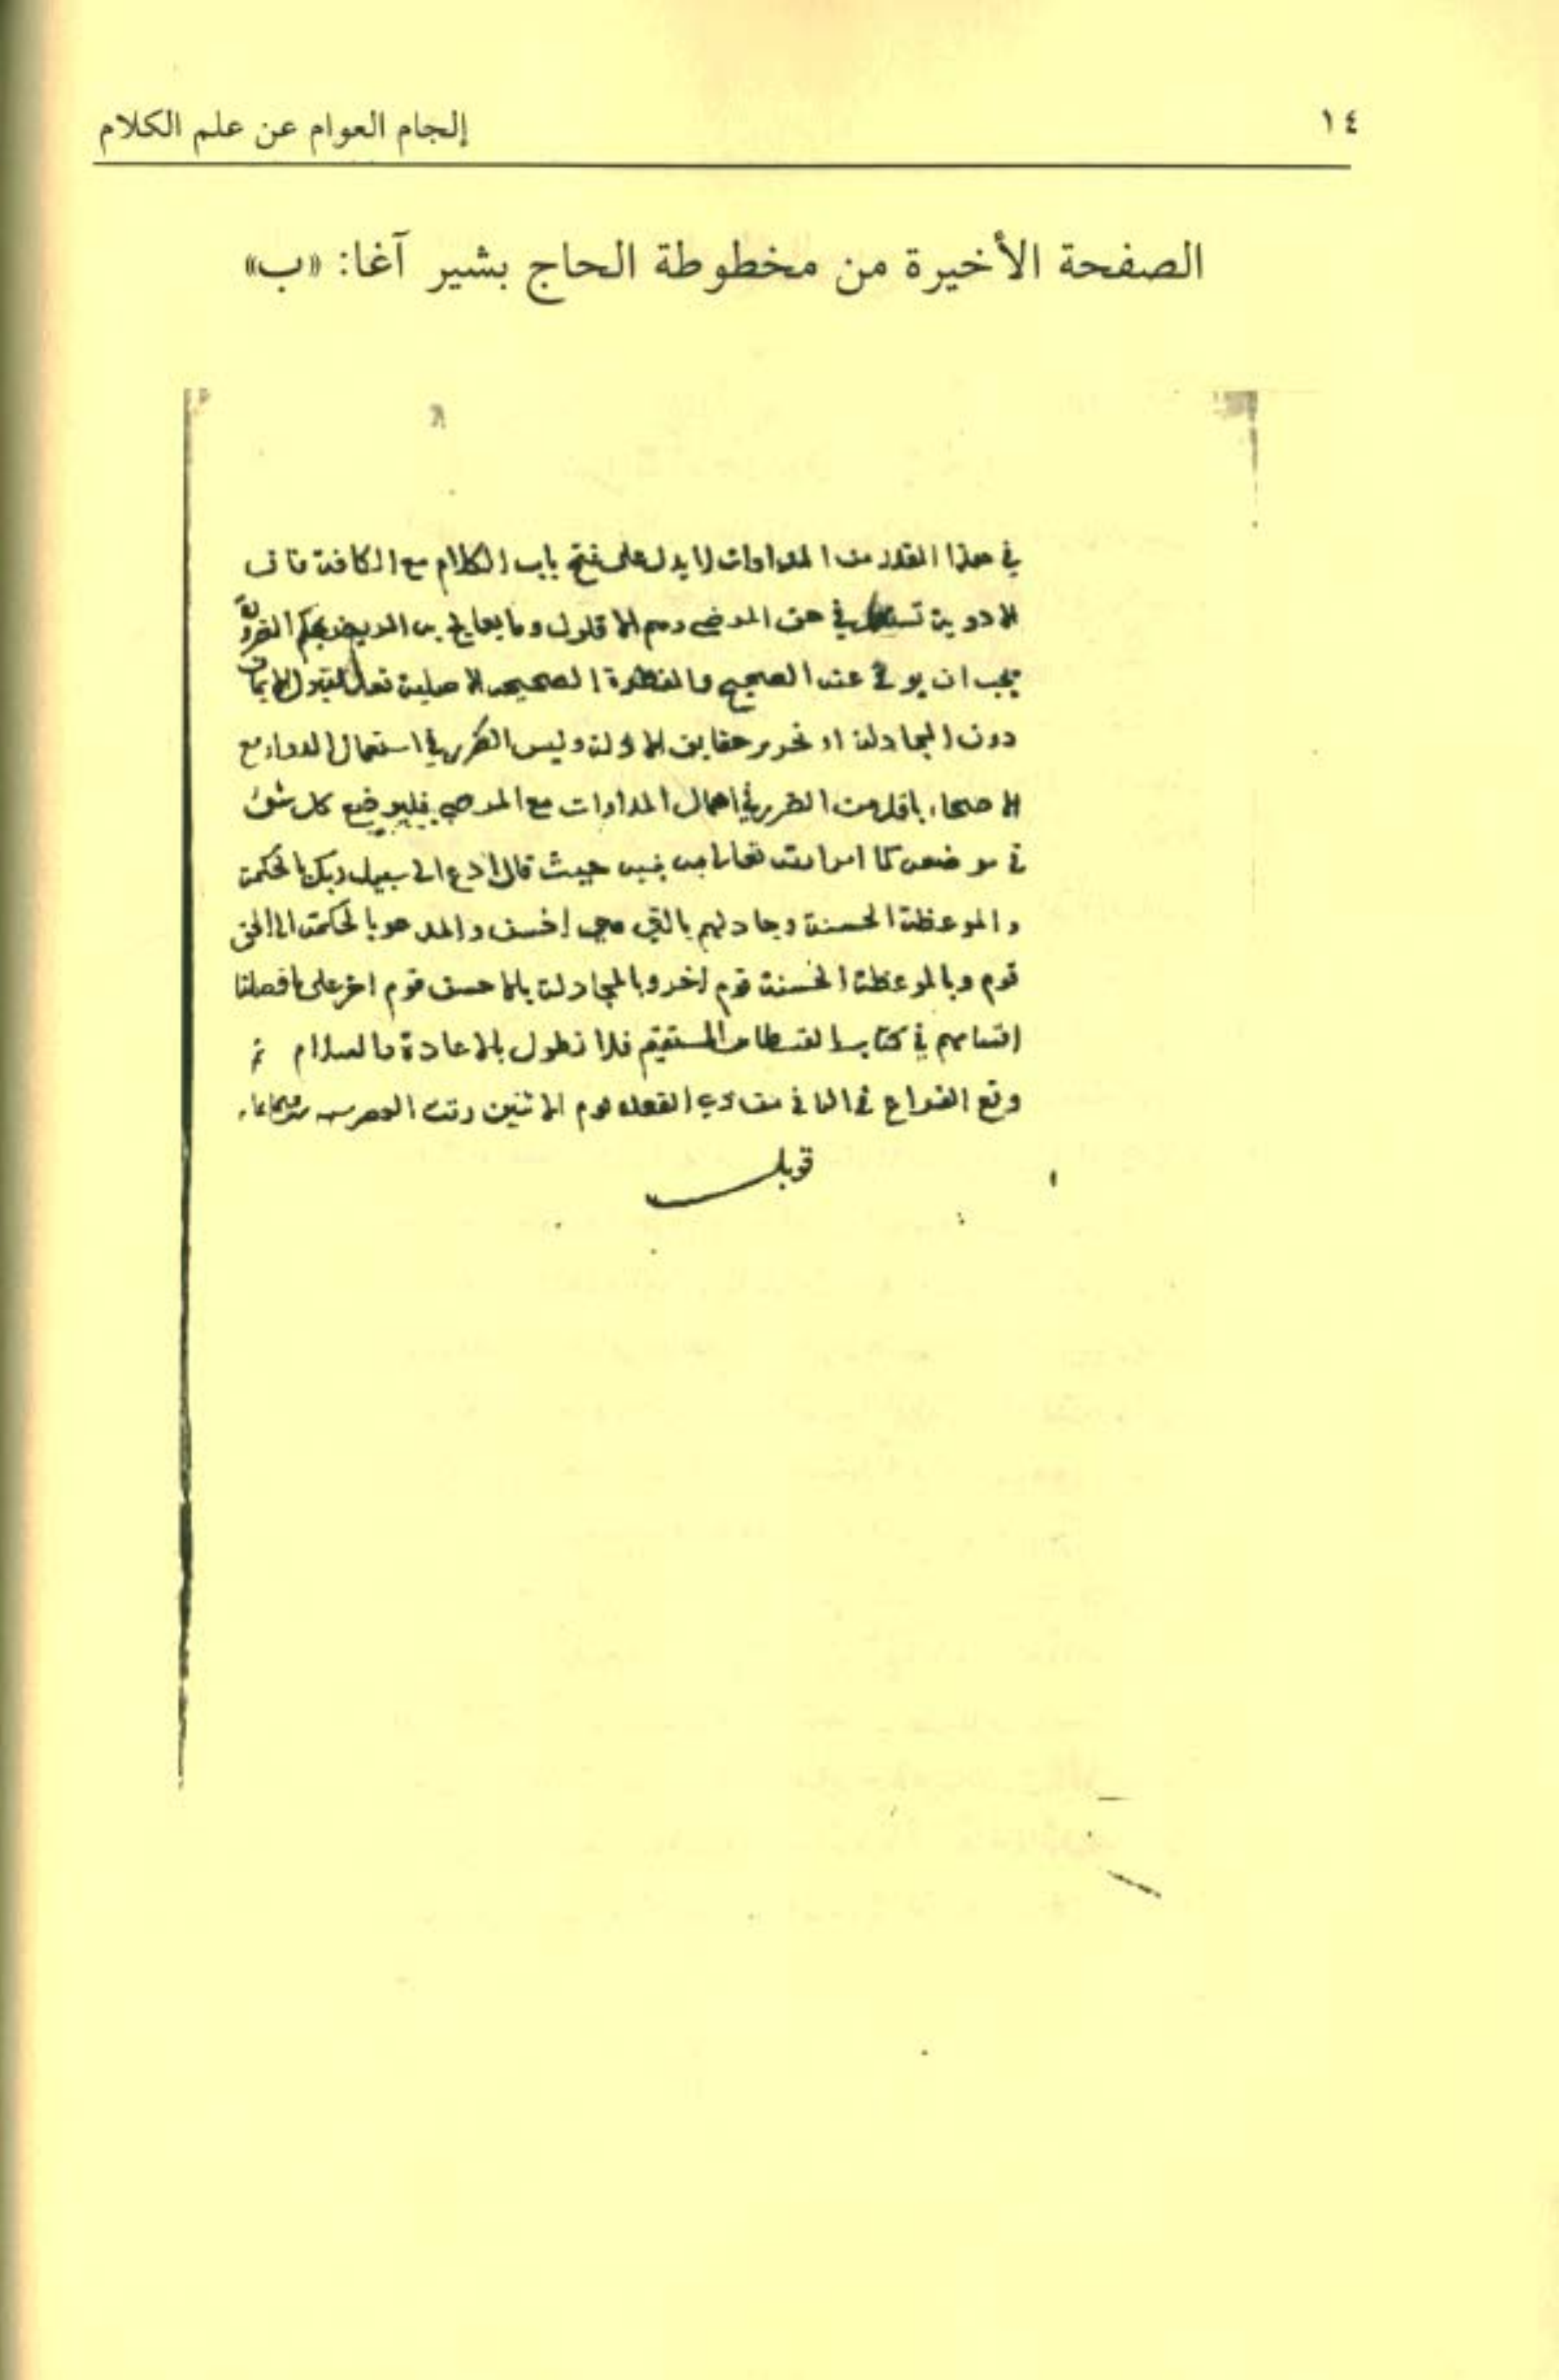 ١٤
إلجام العوام عن علم الكلام
الصفحة الأخيرة من مخطوطة الحاج بشير آغا: «ب»
في هذا القدر من المداوات لا يدل على فتح باب الكلام مع الكافة فان
الادوية تستعمل في حق المرضى وهم الاقلون وما يعالج به المريض بحكم الضرورة
يجب ان يوقى عنه الصحيح والفطرة الصحيحة الاصلية تعد لقبول الايمان
دون المجادلة او تحرير حقايق الادلة وليس الضرر في استعمال الدواء مع
الاصحاء باقل من الضرر في اهمال المداوات مع المرضى فليوضع كل شئ
في موضعه كما امر الله تعالى به نبيه حيث قال ادع الى سبيل ربك بالحكمة
والموعظة الحسنة وجادلهم بالتي هي احسن والمدعو بالحكمة الى الحق
قوم وبالموعظة الحسنة قوم اخر وبالمجادلة بالاحسن قوم اخر على ما فصلنا
اقسامهم في كتاب القسطاس المستقيم فلا نطول بالاعادة والسلام تم
وقع الفراغ في من ذي القعده يوم الاثنين وقت
قوبل